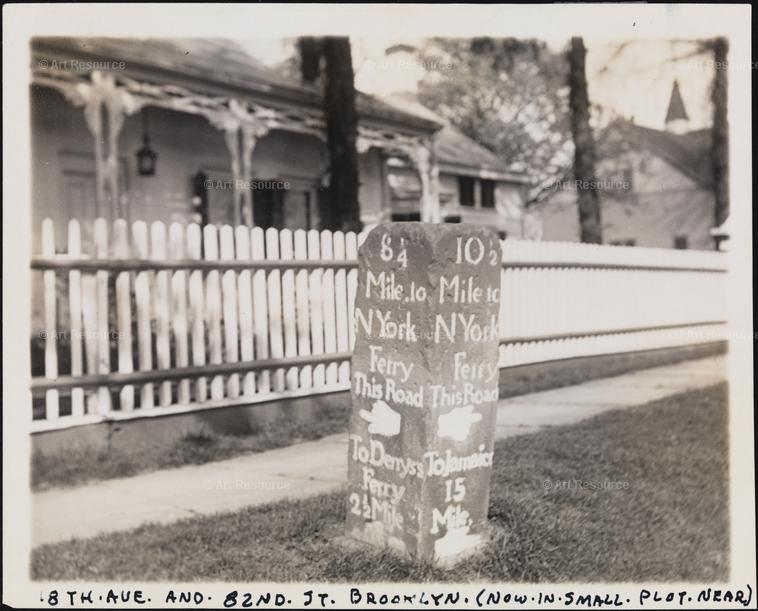 8¼
Mile.to
N York
Ferry
This Road
To Denyss
Ferry
2½ Mile
10½
Mile to
N York
Ferry
This Road
To Jamaica
15
Mile.
18TH.AVE. AND. 82ND. ST. BROOKLYN. (NOW.IN.SMALL. PLOT. NEAR)
© Art Resource
© Art Resource
© Art Resource
© Art Resource
© Art Resource
© Art Resource
© Art Resource
© Art Resource
© Art Resource
© Art Resource
© Art Resource
© Art Resource